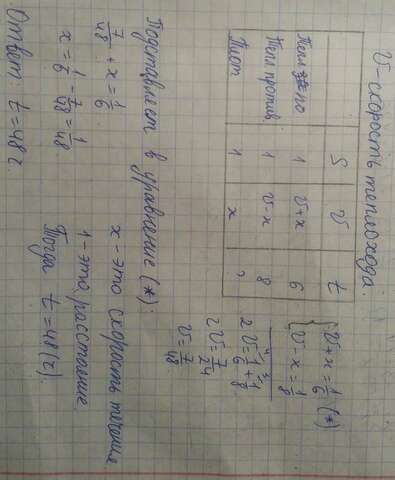 v-скорость теплохода.
S v t
Тепл по 1 v+x 6
Тепл против 1 v-x 8
Плот 1 x ?
{ v+x=1/6 (*)
v-x=1/8
2v=1/6+1/8
2v=7/24
v=7/48
Подставляем в уравнение (*):
7/48+x=1/6
x=1/6-7/48=1/48
x-это скорость течение
1-это расстояние
Тогда t=48(ч)
Ответ: t=48ч